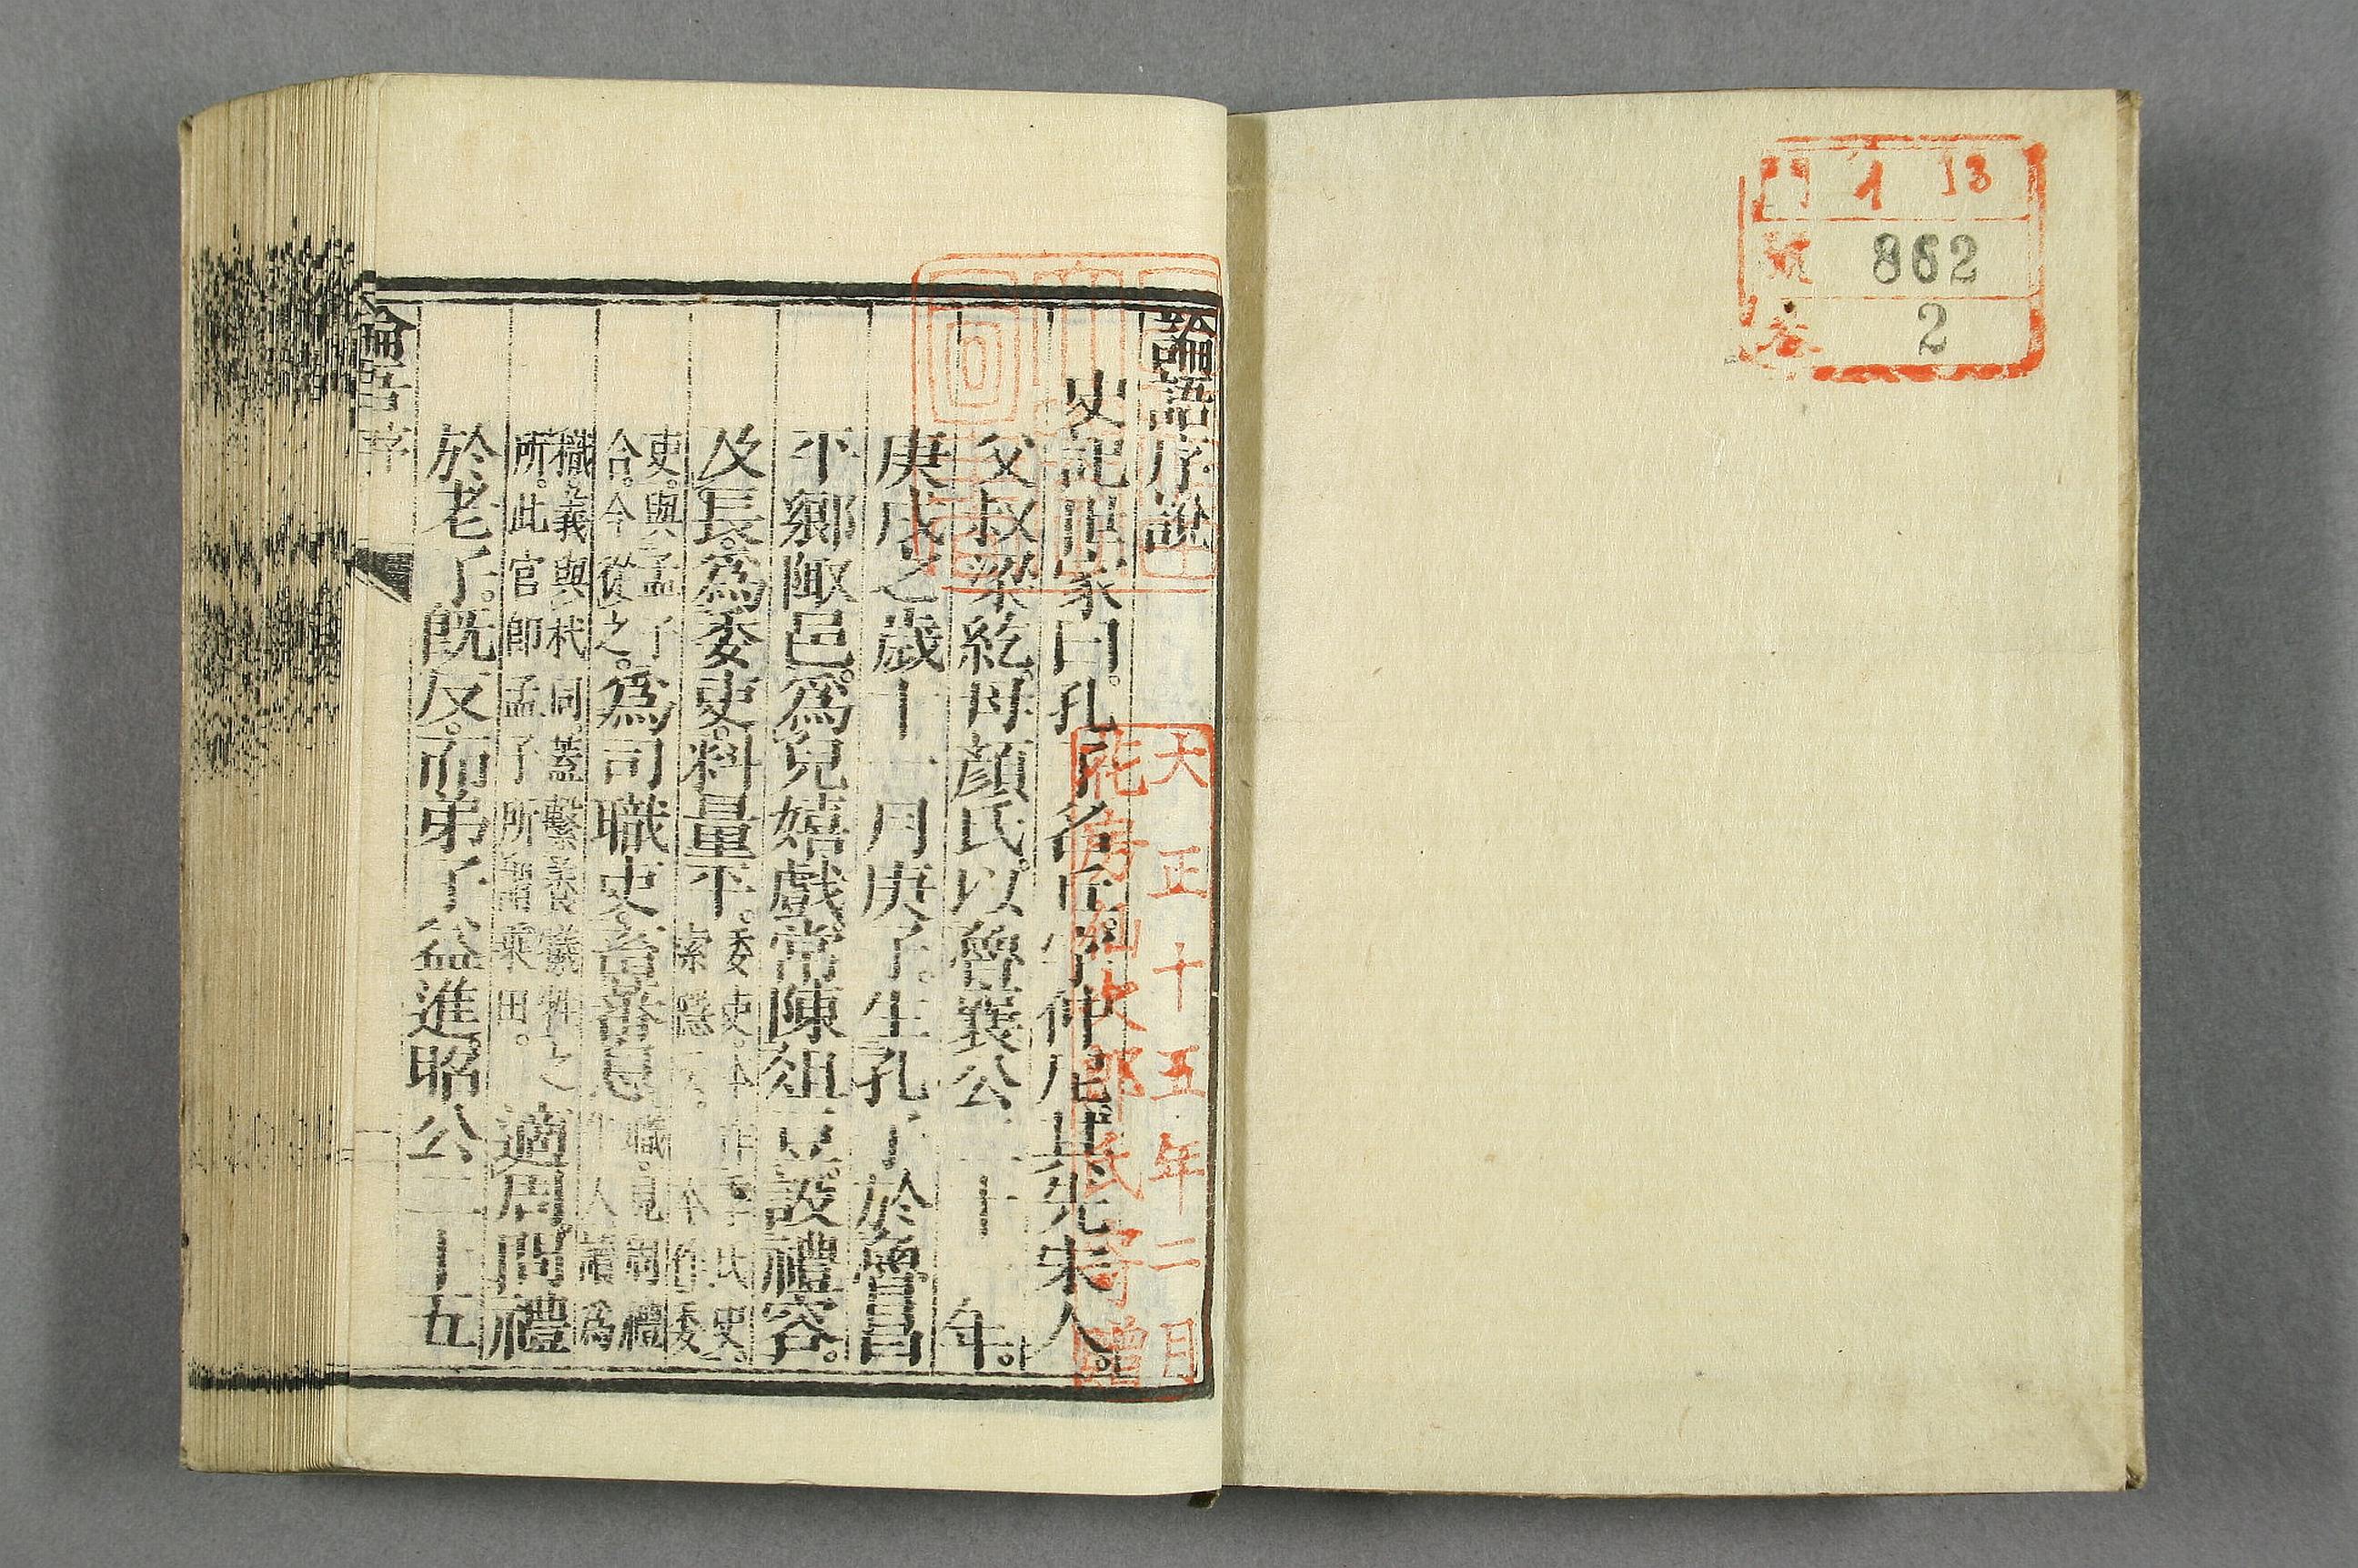 門 イ 13
號 862
卷 2
大正十五年二月
花房仙次郎氏寄贈
論語序說
史記世家曰。孔子名丘。字仲尼。其先宋人。
父叔梁紇。母顏氏。以魯襄公二十二年。
庚戌之歲十一月庚子。生孔子於魯昌
平鄉陬邑。爲兒嬉戲。常陳俎豆。設禮容。
及長。爲委吏。料量平。
委吏。本作季氏史。
索隱云。一本作委
吏。與孟子
合。今從之。
爲司職吏。畜蕃息。
職。見周禮
牛人。讀爲
樴。義與杙同。蓋繫養犧牲之
所。此官卽孟子所謂乘田。
適周。問禮
於老子。旣反。而弟子益進。昭公二十五
論語序